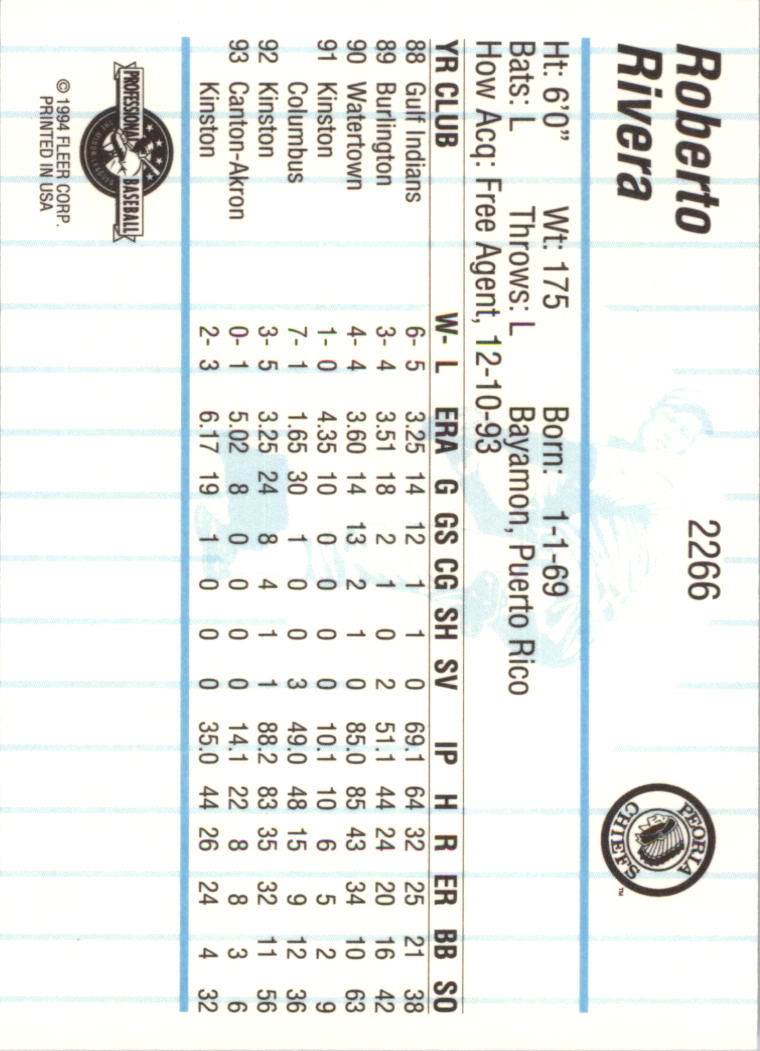 Roberto
Rivera
2266
PEORIA CHIEFS™
Ht: 6'0" Wt: 175 Born: 1-1-69
Bats: L Throws: L Bayamon, Puerto Rico
How Acq: Free Agent, 12-10-93
YR CLUB W- L ERA G GS CG SH SV IP H R ER BB SO
88 Gulf Indians 6- 5 3.25 14 12 1 1 0 69.1 64 32 25 21 38
89 Burlington 3- 4 3.51 18 2 1 0 2 51.1 44 24 20 16 42
90 Watertown 4- 4 3.60 14 13 2 1 0 85.0 85 43 34 10 63
91 Kinston 1- 0 4.35 10 0 0 0 0 10.1 10 6 5 2 9
Columbus 7- 1 1.65 30 1 0 0 3 49.0 48 15 9 12 36
92 Kinston 3- 5 3.25 24 8 4 1 1 88.2 83 35 32 11 56
93 Canton-Akron 0- 1 5.02 8 0 0 0 0 14.1 22 8 8 3 6
Kinston 2- 3 6.17 19 1 0 0 0 35.0 44 26 24 4 32
PROFESSIONAL BASEBALL
© 1994 FLEER CORP.
PRINTED IN USA